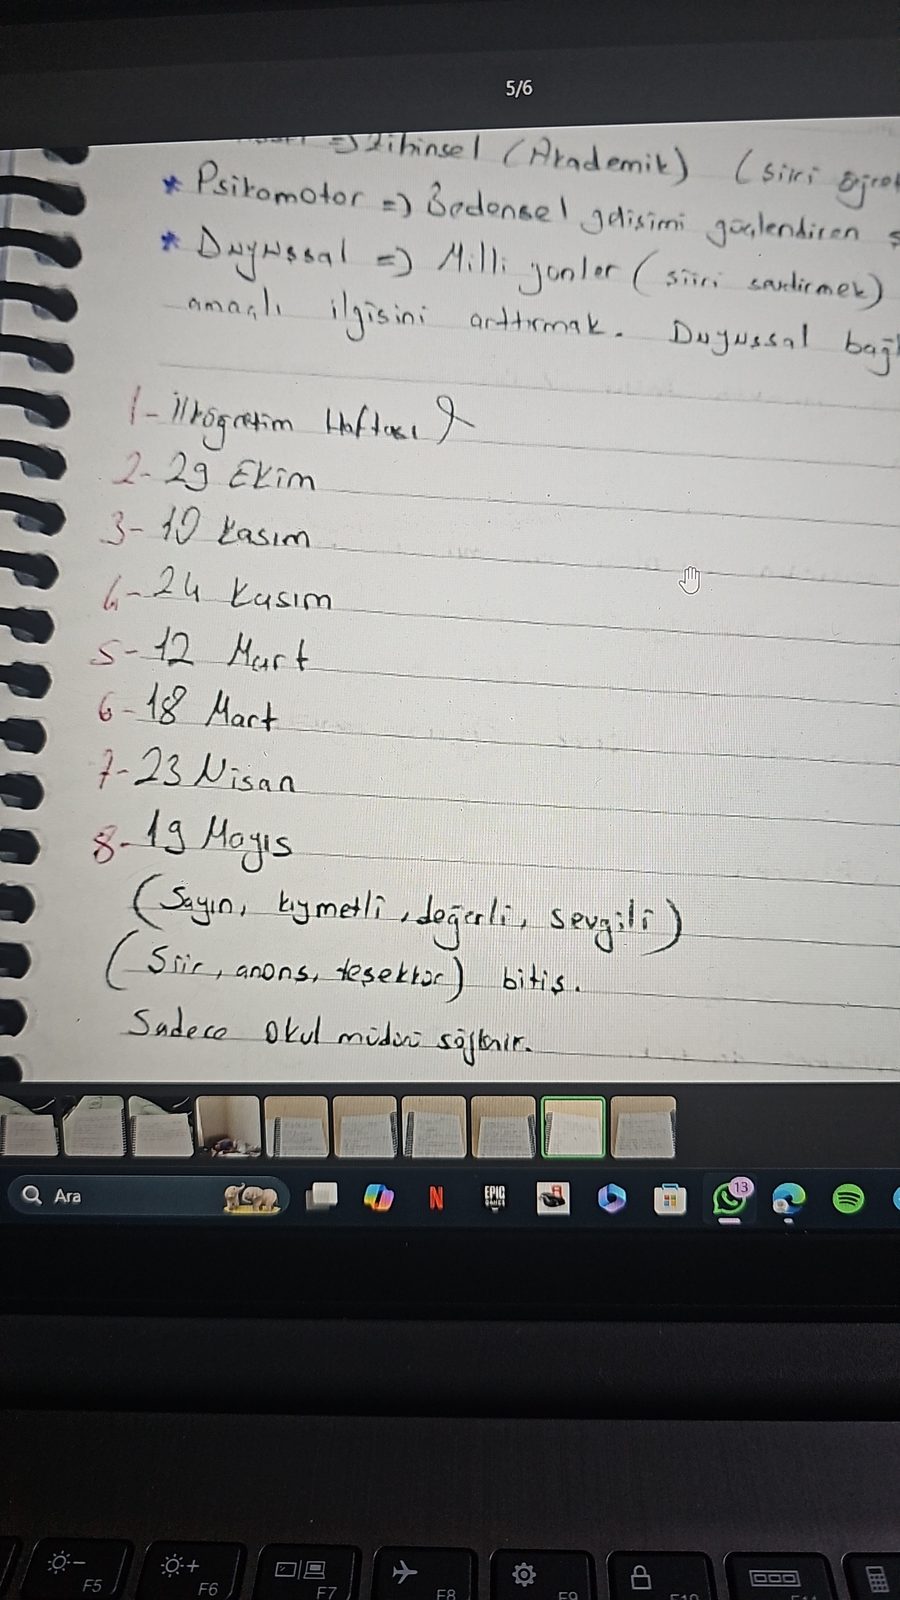 5/6
=> Zihinsel (Akademik) (şiiri öğret
* Psikomotor => Bedensel gelişimi güçlendiren
* Duyuşsal => Milli yönler (şiiri sevdirmek)
amaçlı ilgisini arttırmak. Duyuşsal bağl
1- İlköğretim Haftası
2- 29 Ekim
3- 10 Kasım
4- 24 Kasım
5- 12 Mart
6- 18 Mart
7- 23 Nisan
8- 19 Mayıs
(Sayın, kıymetli, değerli, sevgili)
(Şiir, anons, teşekkür) bitiş.
Sadece okul müdürü söylenir.
Ara
N
EPIC GAMES
13
F5 F6 F7 F8 F9 F10